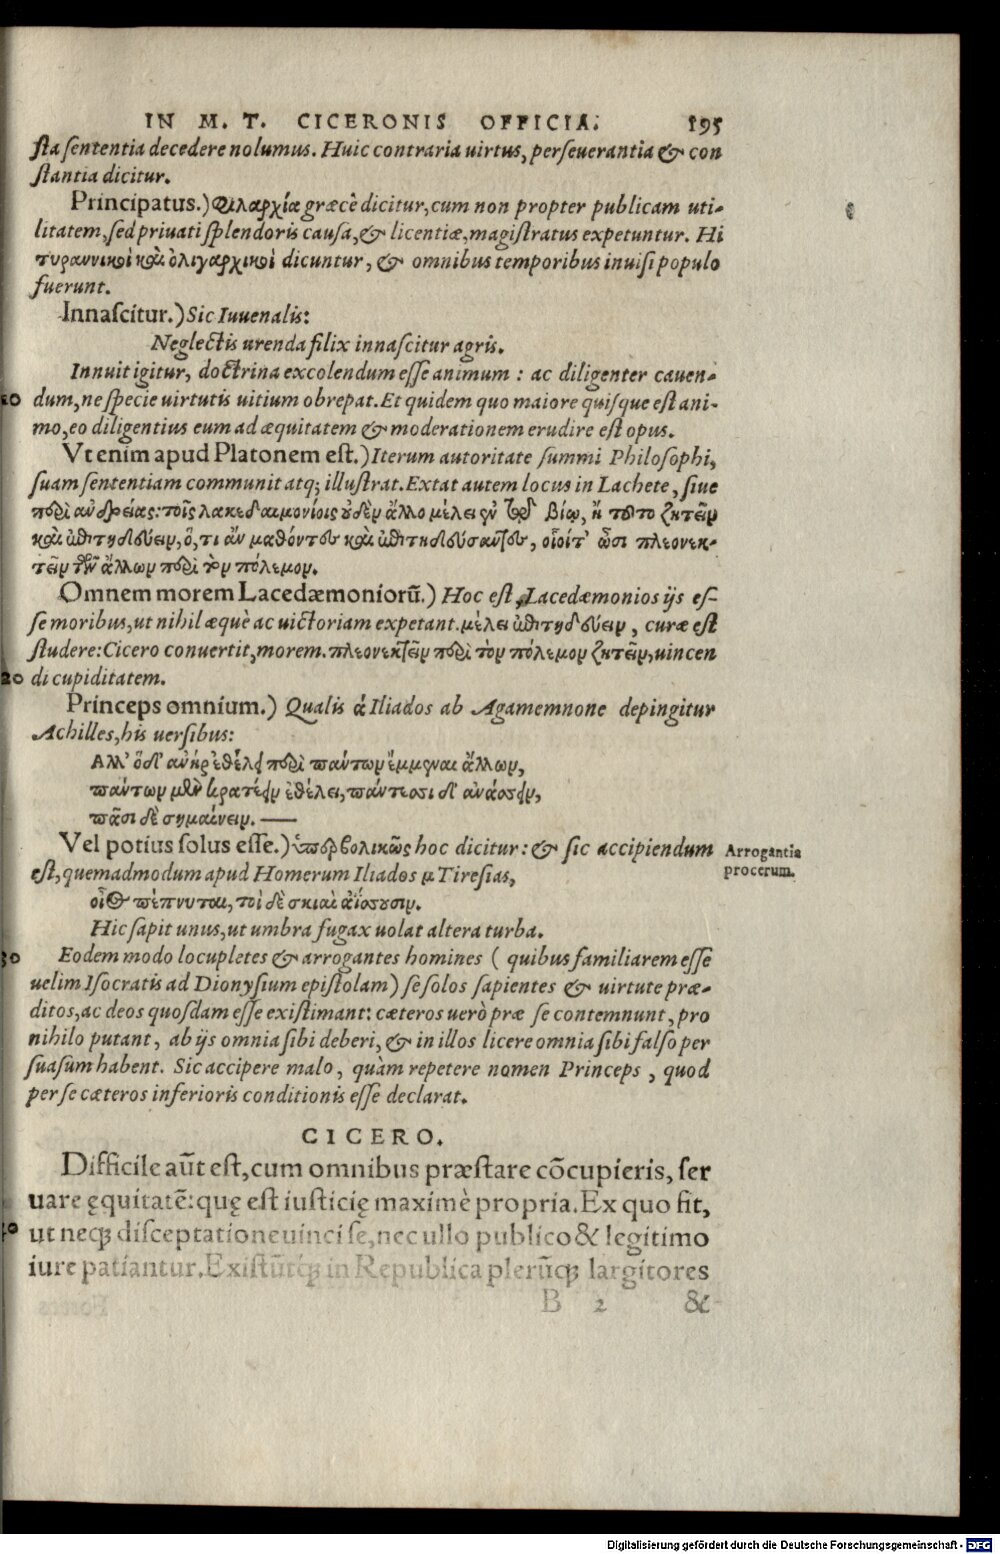 IN M. T. CICERONIS OFFICIA. 195
sta sententia decedere nolumus. Huic contraria uirtus, perseuerantia & con
stantia dicitur.
Principatus.) Φιλαρχία græcè dicitur, cum non propter publicam uti-
litatem, sed priuati splendoris causa, & licentiæ, magistratus expetuntur. Hi
τυραννικοὶ καὶ ὀλιγαρχικοὶ dicuntur, & omnibus temporibus inuisi populo
fuerunt.
Innascitur.) Sic Iuuenalis:
Neglectis urenda filix innascitur agris.
Innuit igitur, doctrina excolendum esse animum : ac diligenter cauen-
10 dum, ne specie uirtutis uitium obrepat. Et quidem quo maiore quisque est ani-
mo, eo diligentius eum ad æquitatem & moderationem erudire est opus.
Vt enim apud Platonem est.) Iterum autoritate summi Philosophi,
suam sententiam communit atq; illustrat. Extat autem locus in Lachete, siue
περὶ ανδρείας: τοῖς λακεδαιμονίοις οὐδὲν ἄλλο μέλει ἐν τῷ βίῳ, ἢ τοῦτο ζητεῖν
καὶ ἐπιτηδεύειν, ὅ, τι ἂν μαθόντες καὶ ἐπιτηδεύσαντες, οἷοίτ' ὦσι πλεονεκ-
τεῖν τῶν ἄλλων περὶ τὸν πόλεμον.
Omnem morem Lacedæmoniorũ.) Hoc est, Lacedæmonios ijs es-
se moribus, ut nihil æquè ac uictoriam expetant. μέλει ἐπιτηδεύειν, curæ est
studere: Cicero conuertit, morem. πλεονεκτεῖν περὶ τὸν πόλεμον ζητεῖν, uincen
20 di cupiditatem.
Princeps omnium.) Qualis α Iliados ab Agamemnone depingitur
Achilles, his uersibus:
Αλλ' ὅδ' ανὴρ ἐθέλει περὶ πάντων ἔμμεναι ἄλλων,
πάντων μὲν κρατέειν ἐθέλει, πάντεσσι δ' ανάσσειν,
πᾶσι δὲ σημαίνειν. —
Vel potius solus esse.) ὑπερβολικῶς hoc dicitur: & sic accipiendum
Arrogantia
procerum.
est, quemadmodum apud Homerum Iliados μ Tiresias,
οἶος πέπνυται, τοὶ δὲ σκιαὶ ἀΐσσουσιν.
Hic sapit unus, ut umbra fugax uolat altera turba.
30 Eodem modo locupletes & arrogantes homines ( quibus familiarem esse
uelim Isocratis ad Dionysium epistolam) se solos sapientes & uirtute præ-
ditos, ac deos quosdam esse existimant: cæteros uerò præ se contemnunt, pro
nihilo putant, ab ijs omnia sibi deberi, & in illos licere omnia sibi falso per
suasum habent. Sic accipere malo, quàm repetere nomen Princeps, quod
per se cæteros inferioris conditionis esse declarat.
CICERO.
Difficile aũt est, cum omnibus præstare cõcupieris, ser
uare ęquitatẽ: quę est iusticię maximè propria. Ex quo fit,
ut neq; disceptatione uinci se, nec ullo publico & legitimo
iure patiantur. Existũtq; in Republica plerũq; largitores
B 2 &
Digitalisierung gefördert durch die Deutsche Forschungsgemeinschaft - DFG